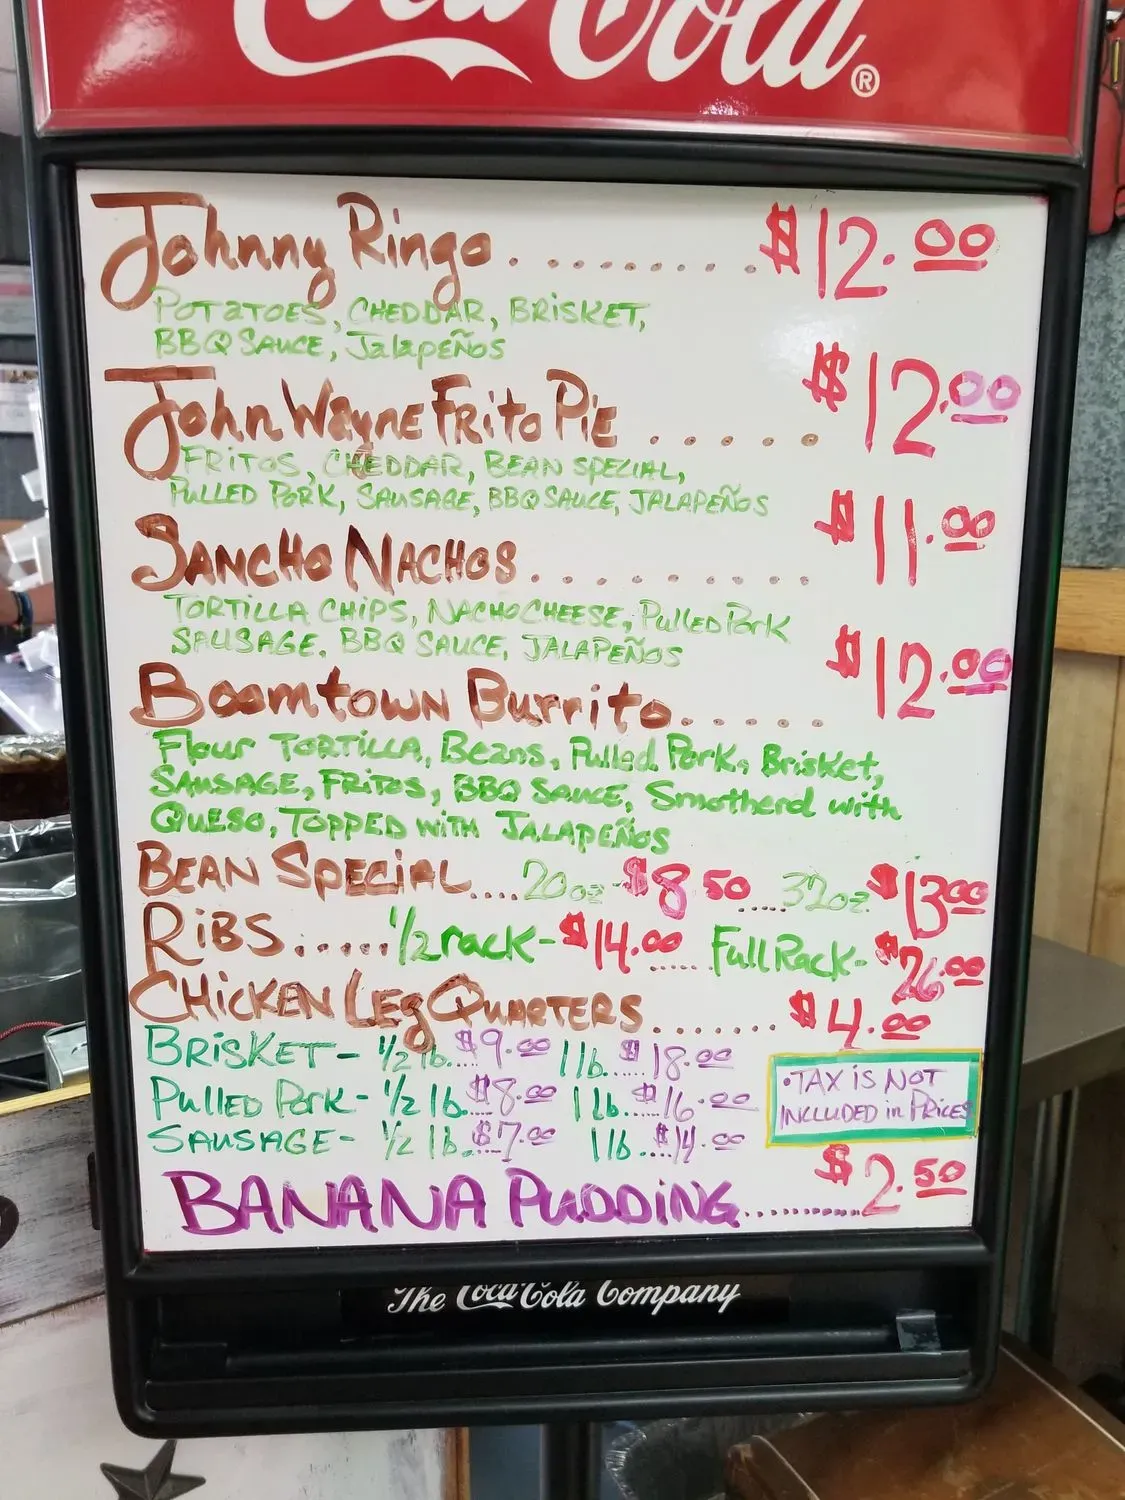 Coca-Cola®
Johnny Ringo . . . . . . . . . $12.00
POTATOES, CHEDDAR, BRISKET,
BBQ SAUCE, JalapeÑOS
John Wayne Frito PiE . . . . . $12.00
FRITOS, CHEDDAR, BEAN SPECIAL,
PULLED PORK, SAUSAGE, BBQ SAUCE, JALAPEÑOS
SANCHO NACHOS . . . . . . . . . $11.00
TORTILLA CHIPS, NACHO CHEESE, PulleD Pork
SAUSAGE. BBQ SAUCE, JALAPEÑOS
Boomtown Burrito . . . . . $12.00
Flour TORTILLA, Beans, Pulled Pork, Brisket,
SAUSAGE, FRITOS, BBQ SAUCE, Smotherd with
QUESO, TOPPED WITH JALAPEÑOS
BEAN SPECIAL....20oz-$8.50.....32oz $13.00
RiBS.....1/2 rack-$14.00......Full Rack-$26.00
CHICKEN Leg QUARTERS....... $4.00
BRISKET- 1/2 lb....$9.00 1 lb....$18.00
Pulled Pork- 1/2 lb....$8.00 1 lb....$16.00
SAUSAGE- 1/2 lb...$7.00 1 lb....$14.00
•TAX iS NOT
INCLUDED in PRICES
BANANA PUDDING..........$2.50
The Coca-Cola Company